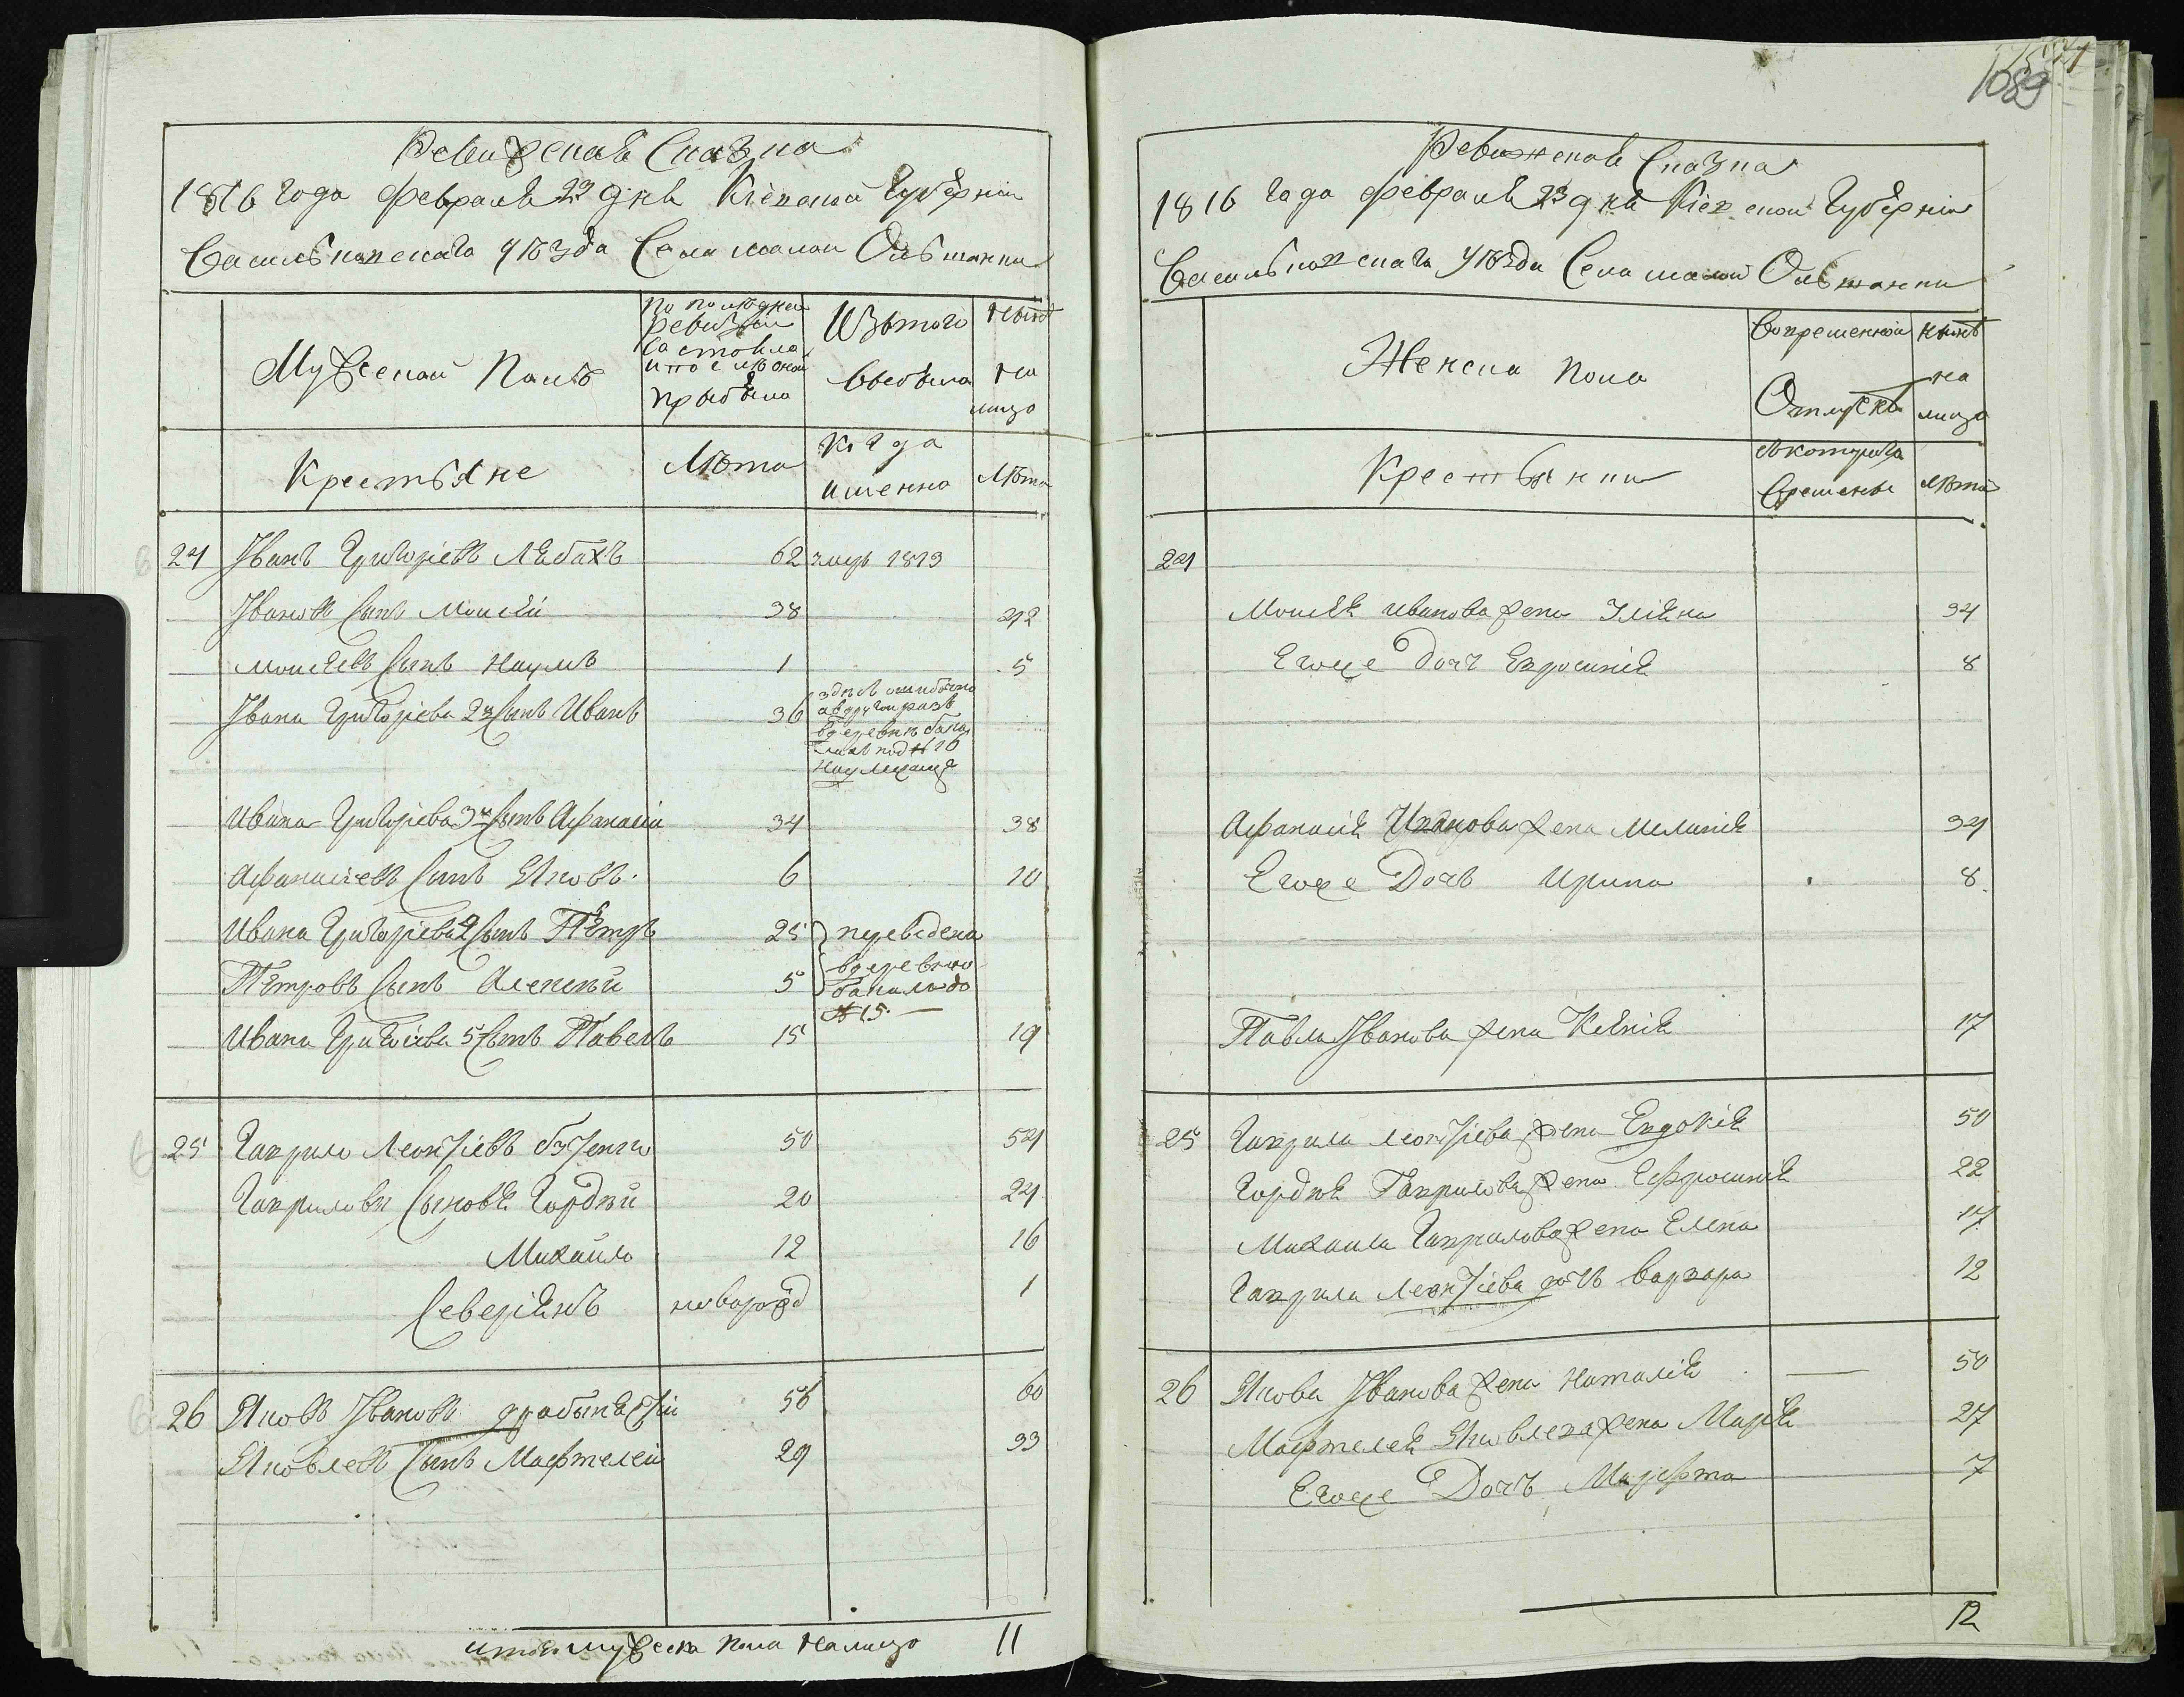 Ревижская Сказка
1816 года февраля 23 дня Кіевской Губерніи
Васильковскаго уѣзда Села малой Ольшанки
Мужеской Полъ
По последней ревизіи состояло и после оной прыбыло
Изъ того выбыло
ныне на лицо
Крестьяне
Лѣта
Когда именно
Лѣта
24 Іванъ Григоріевъ 62 умръ 1813
Івановъ сынъ Моисей 38 42
Моисеевъ сынъ Наумъ 1 5
Івана Григорієва 2й сынъ Иванъ 36
здѣсь ошибочно
а вдругои разъ
вдеревнѣ
под № 16
Ивана Григоріева 3й сынъ Афанасіи 34 38
Афанасіевъ сынъ Яковъ 6 10
Ивана Григоріева 4 сынъ Петръ 25 переведена
Петровъ сынъ Алексѣй 5 вдеревню
№ 15
Ивана Григоріева 5 сынъ Павелъ 15 19
25 Гаврило Леонтіевъ 50 54
Гавриловы сыновя Гордѣй 20 24
Михайло 12 16
Северіянъ новорожд 1
26 Яковъ Івановъ 56 60
Яковлевъ сынъ Мафтелей 29 33
итого мужеска пола налицо 11
1089
Ревижская Сказка
1816 года февраля 23 дня Кіевской Губерніи
Васильковскаго уѣзда Села малой Ольшанки
Женска пола
Вовременной Отлучкѣ
нынѣ на лицо
Крестьянки
Скоторого времены
лѣта
24
Моисея Иванова жена Улияна 34
Егоже дочъ Евдосиния 8
Афанасія Иванова жена Меланія 34
Егоже Дочъ Ирина 8
Павла Іванова жена Ксенія 17
25 Гаврила Леонтіева жена Евдокія 50
Гордѣя Гаврилова жена Ефросинія 22
Михаила Гаврилова жена Елена 17
Гаврила Леонтіева дочъ Варвара 12
26 Якова Іванова жена Наталія — 50
Мафтелея Яковлева жена Марія 27
Егоже Дочъ Марефта 7
12